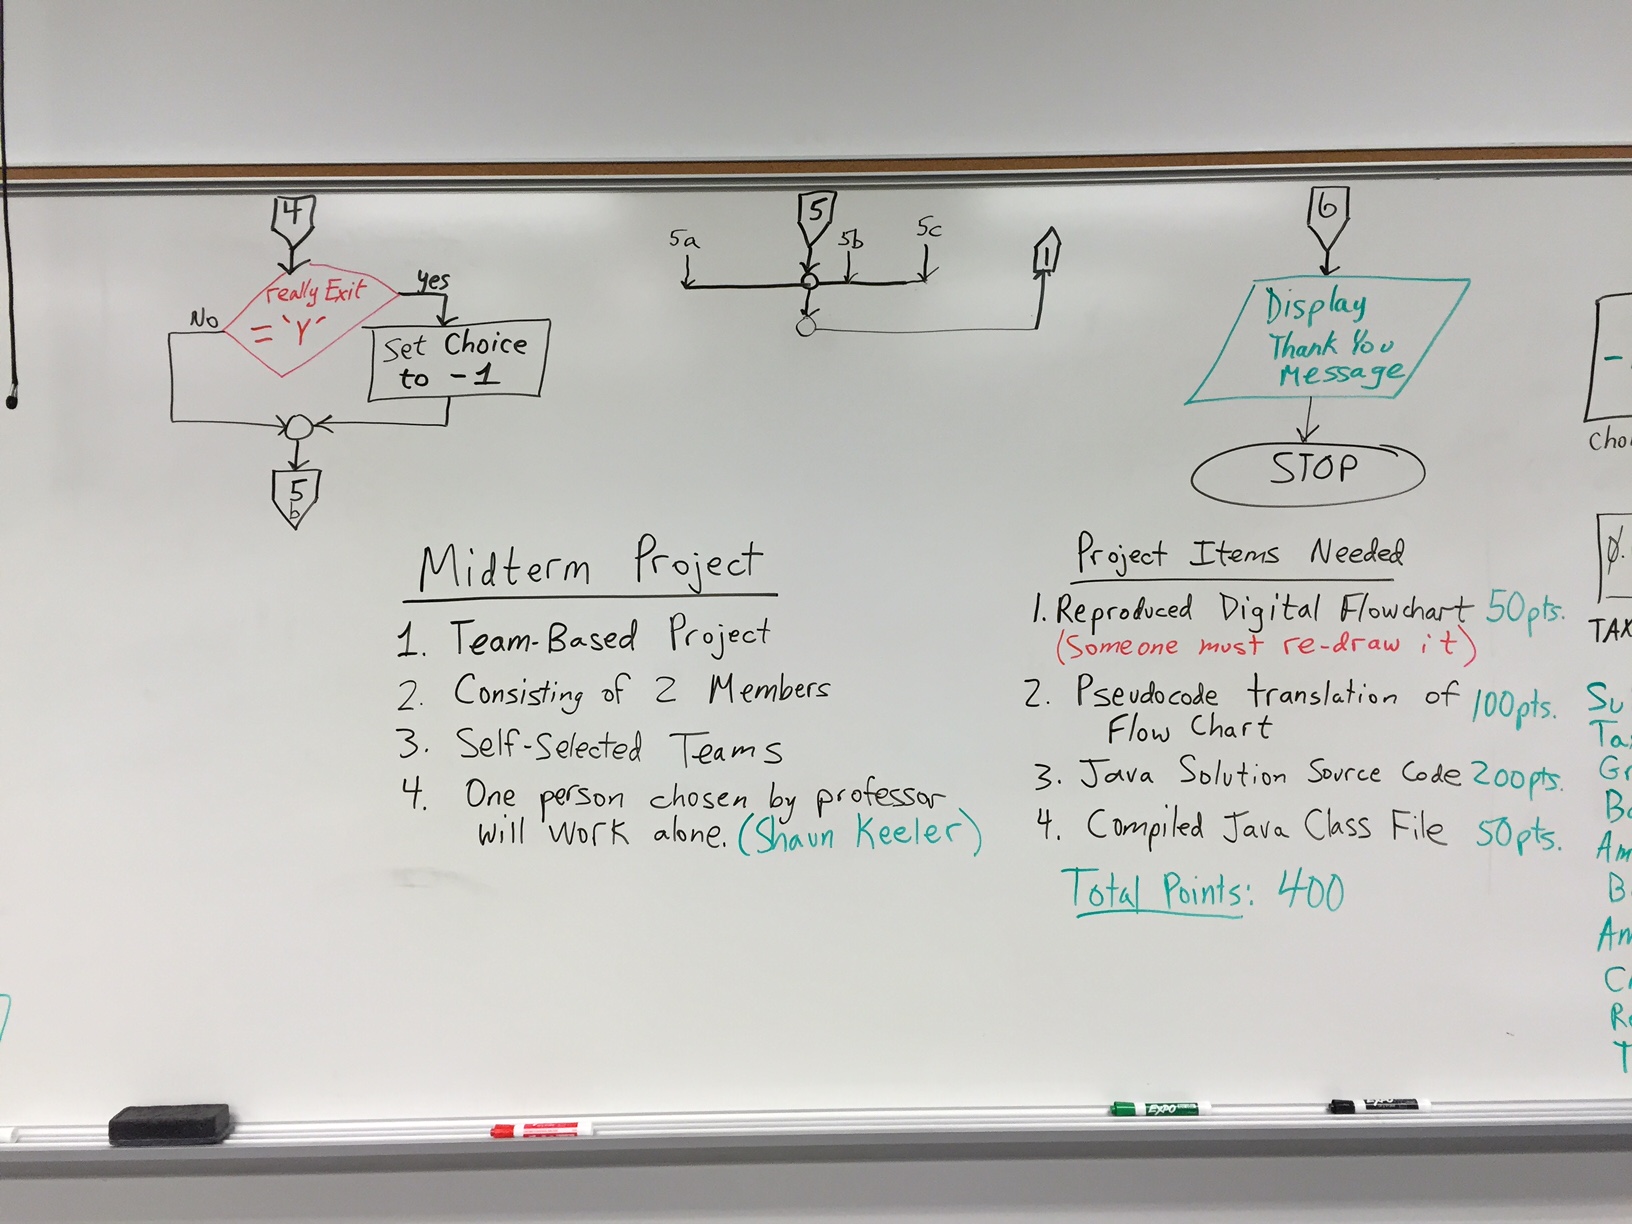 4
really Exit
= 'Y'
yes
No
Set Choice
to - 1
5
b
5a
5
5b
5c
1
6
Display
Thank You
Message
STOP
Midterm Project
1. Team-Based Project
2. Consisting of 2 Members
3. Self-Selected Teams
4. One person chosen by professor
will work alone. (Shaun Keeler)
Project Items Needed
1. Reproduced Digital Flowchart 50pts.
(Someone must re-draw it)
2. Pseudocode translation of 100pts.
Flow Chart
3. Java Solution Source Code 200pts.
4. Compiled Java Class File 50pts.
Total Points: 400
-
Cho
0.
TAX
Su
Ta
Gr
Ba
Am
B
Am
C
Re
T
EXPO
EXPO